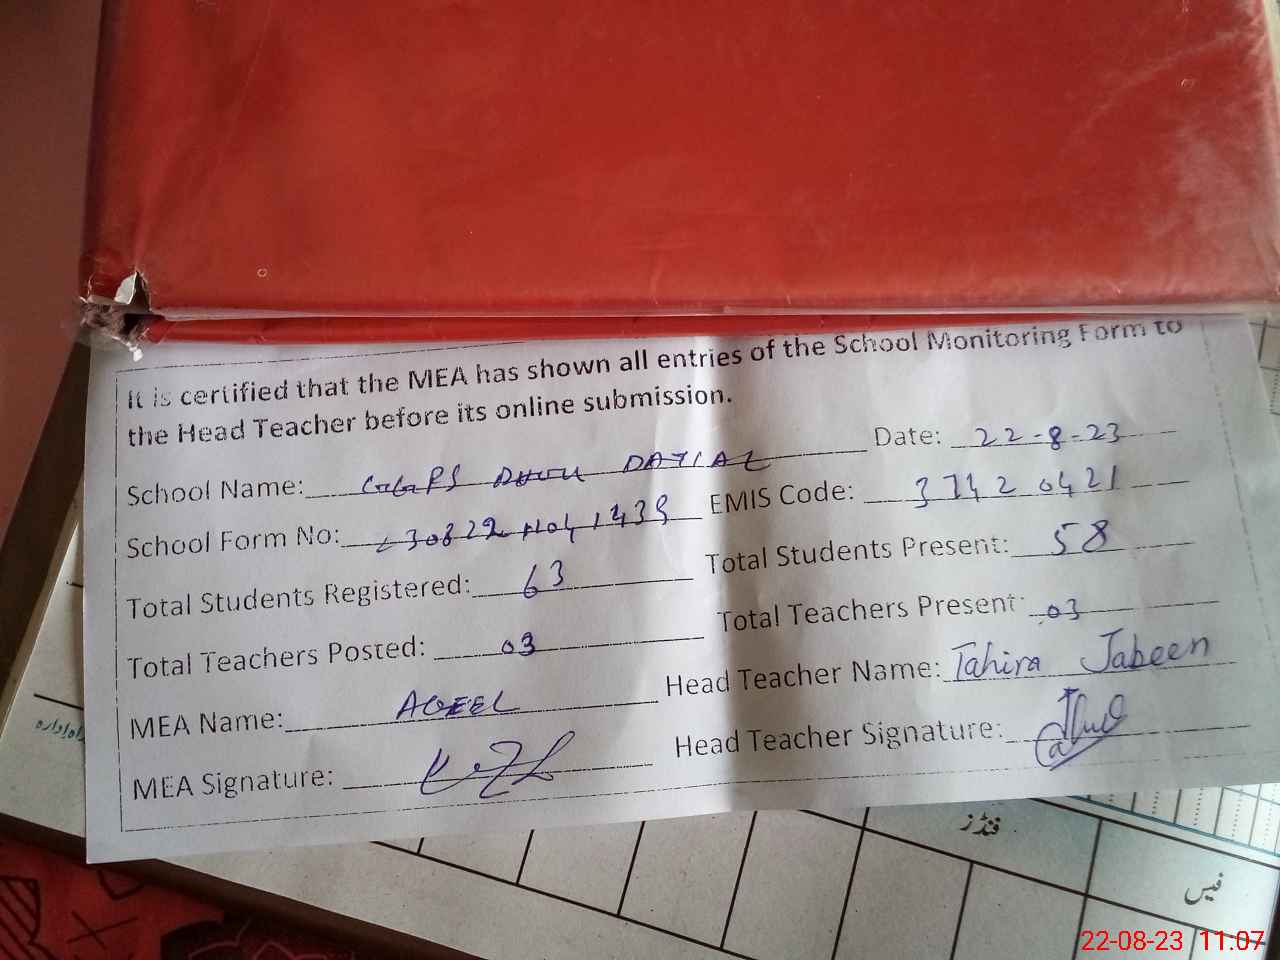 It is certified that the MEA has shown all entries of the School Monitoring Form to
the Head Teacher before its online submission.
School Name: GGPS DAYIAL Date: 22-8-23
School Form No: EMIS Code: 37420421
Total Students Registered: 63 Total Students Present: 58
Total Teachers Posted: 03 Total Teachers Present: 03
MEA Name: AQEEL Head Teacher Name: Tahira Jabeen
MEA Signature: Head Teacher Signature:
فنڈز
فیس
22-08-23 11.07